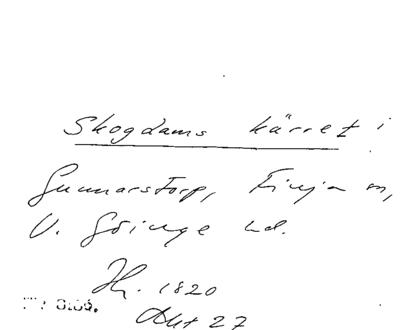 Skogdams kärret i
Gunnarstorp, Finja sn,
V. Göinge hd.
Hy. 1820
Akt 27